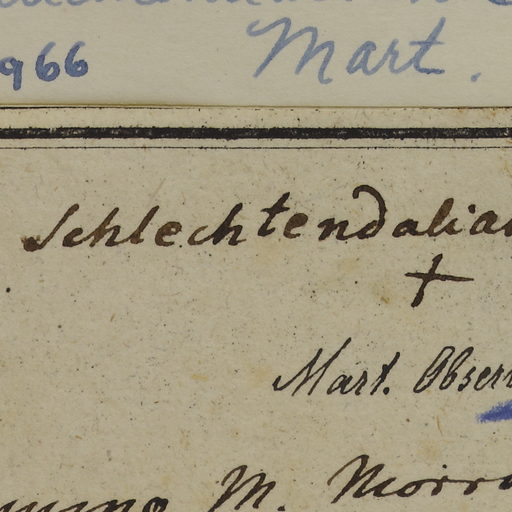 966 Mart.
Schlechtendalia
Mart. Obser
M. Morro